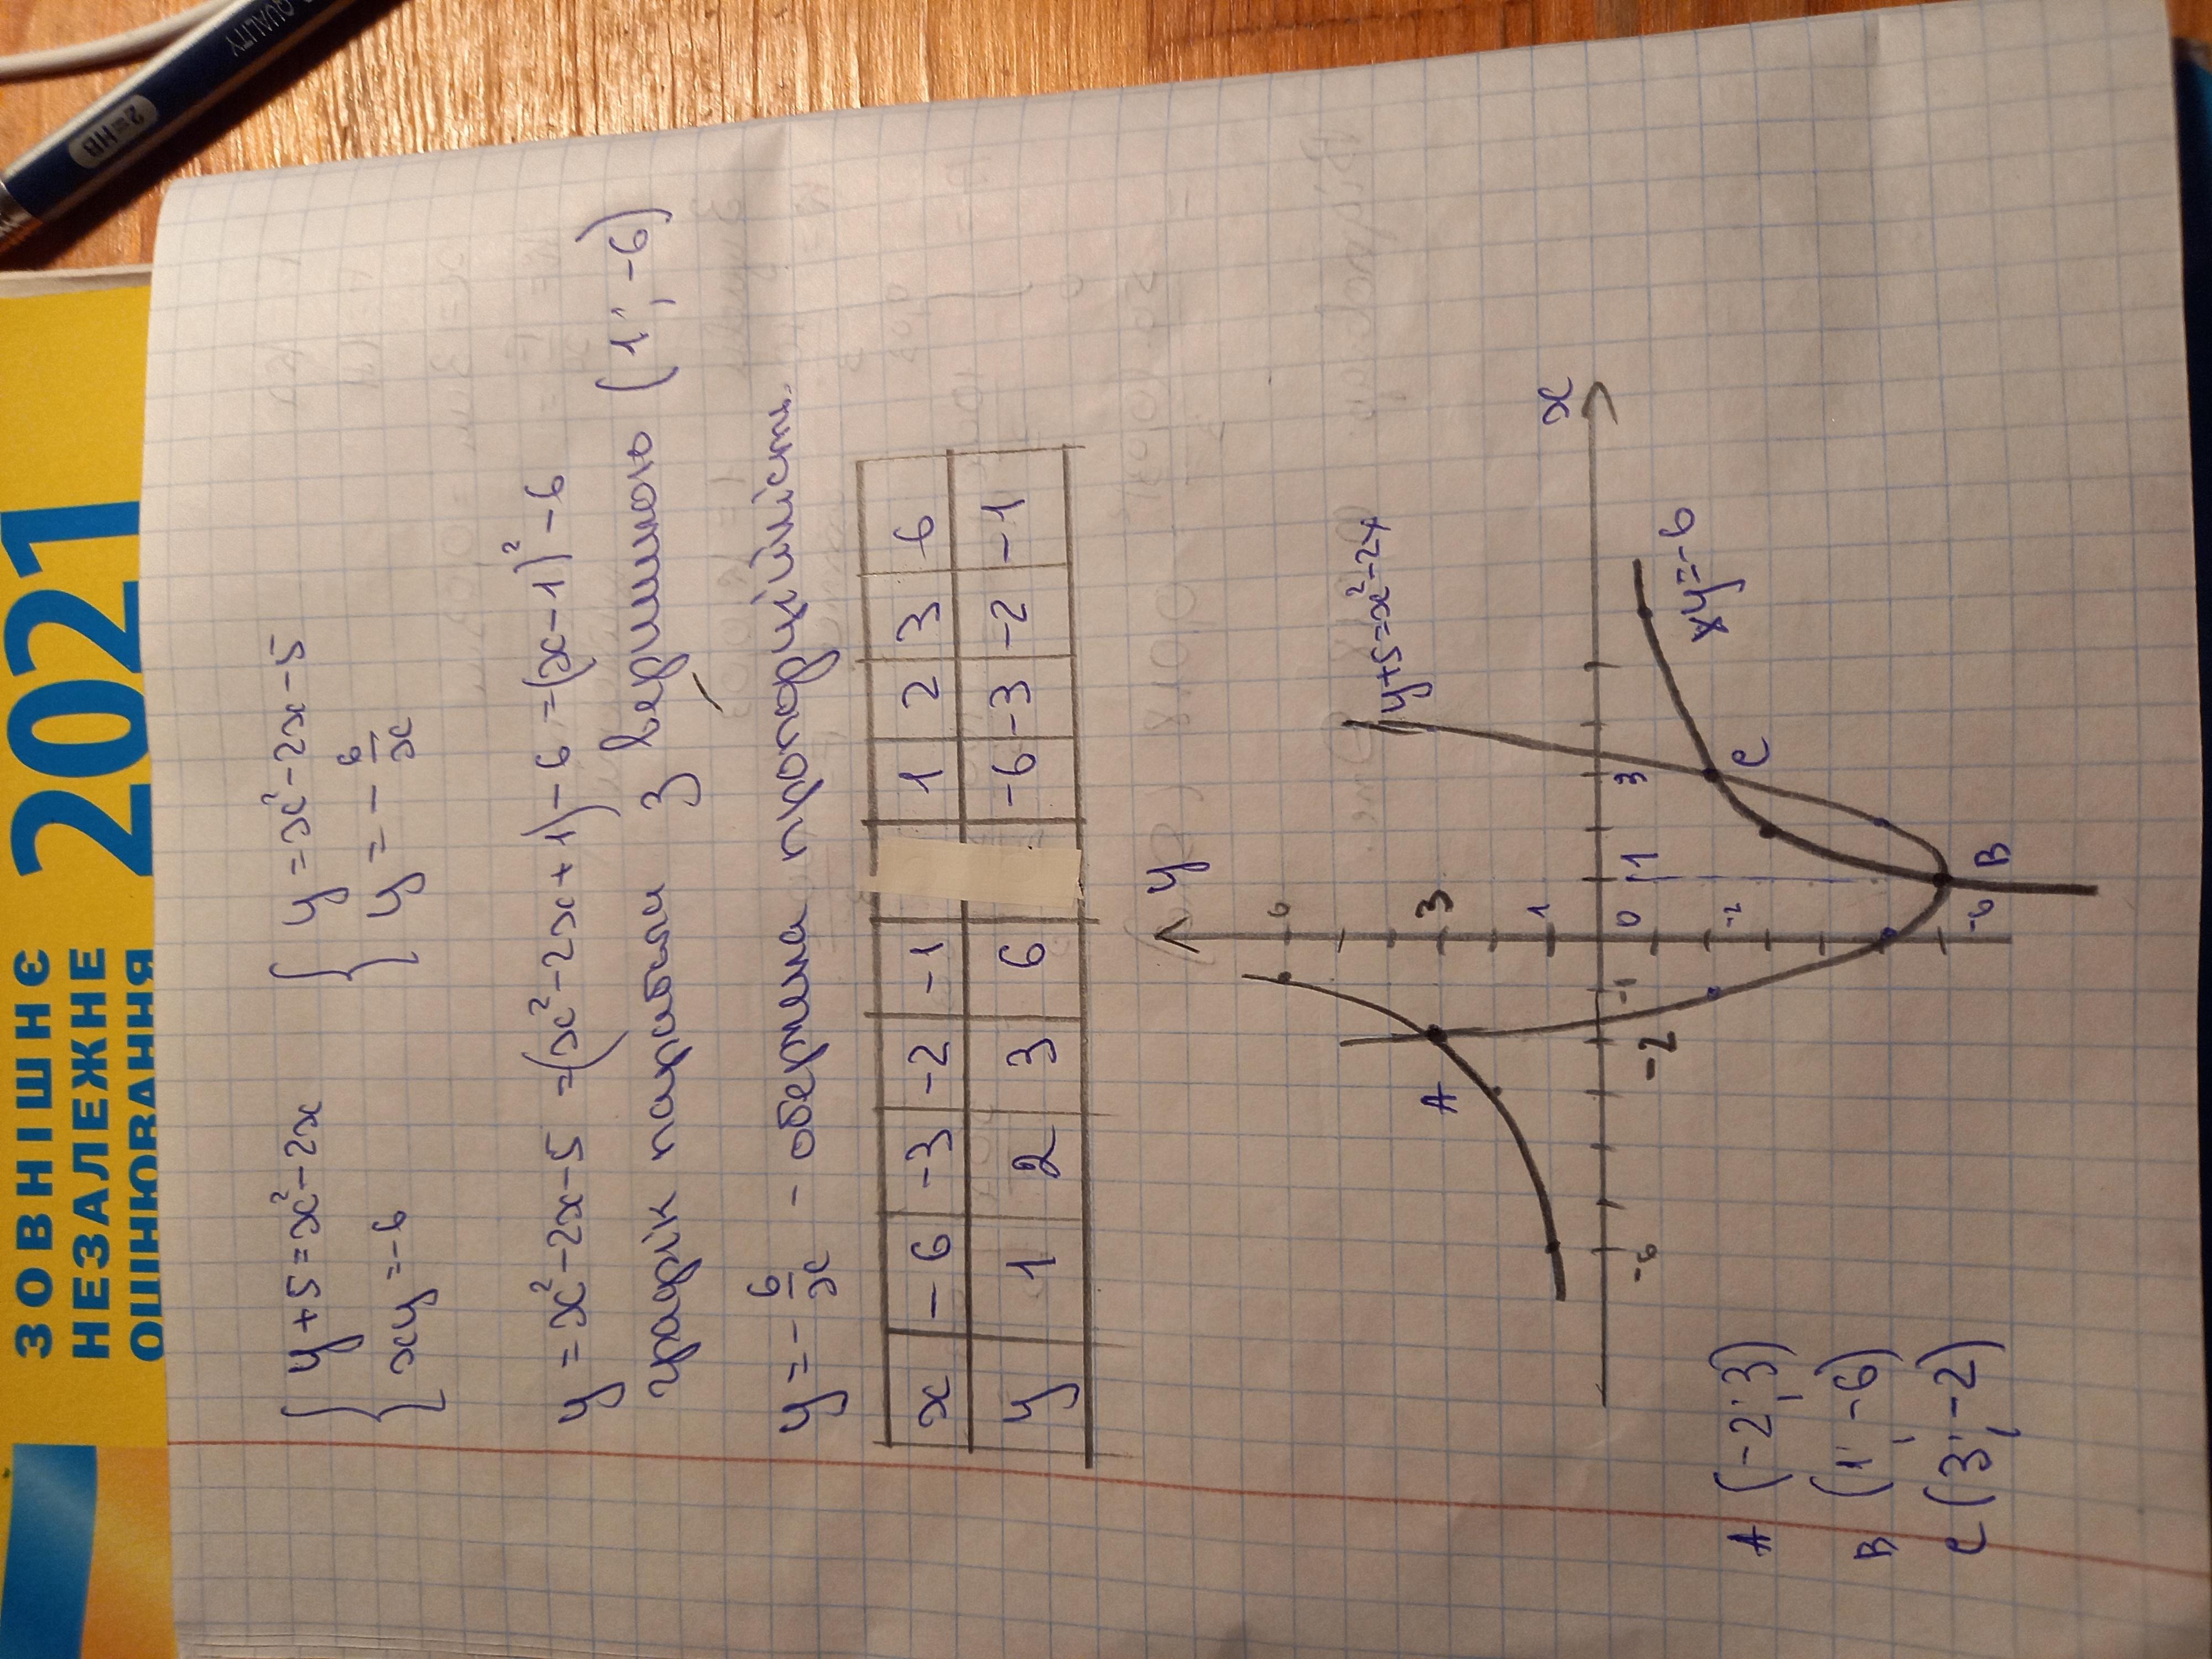 QUALITY
2=HB
ЗОВНІШНЄ
НЕЗАЛЕЖНЕ
ОЦІНЮВАННЯ
2021
{ y+5=x²-2x { y=x²-2x-5
xy=-6 y=-6/x
y=x²-2x-5 =(x²-2x+1)-6=(x-1)²-6
графік параболи з вершиною (1;-6)
y=-6/x - обернена пропорційність.
x -6 -3 -2 -1 1 2 3 6
y 1 2 3 6 -6 -3 -2 -1
y
6
3
y+5=x²-2x
A
1
x
-6 -2 -1 0 1 3
xy=-6
-2
C
-6
B
A (-2;3)
B (1;-6)
C (3;-2)